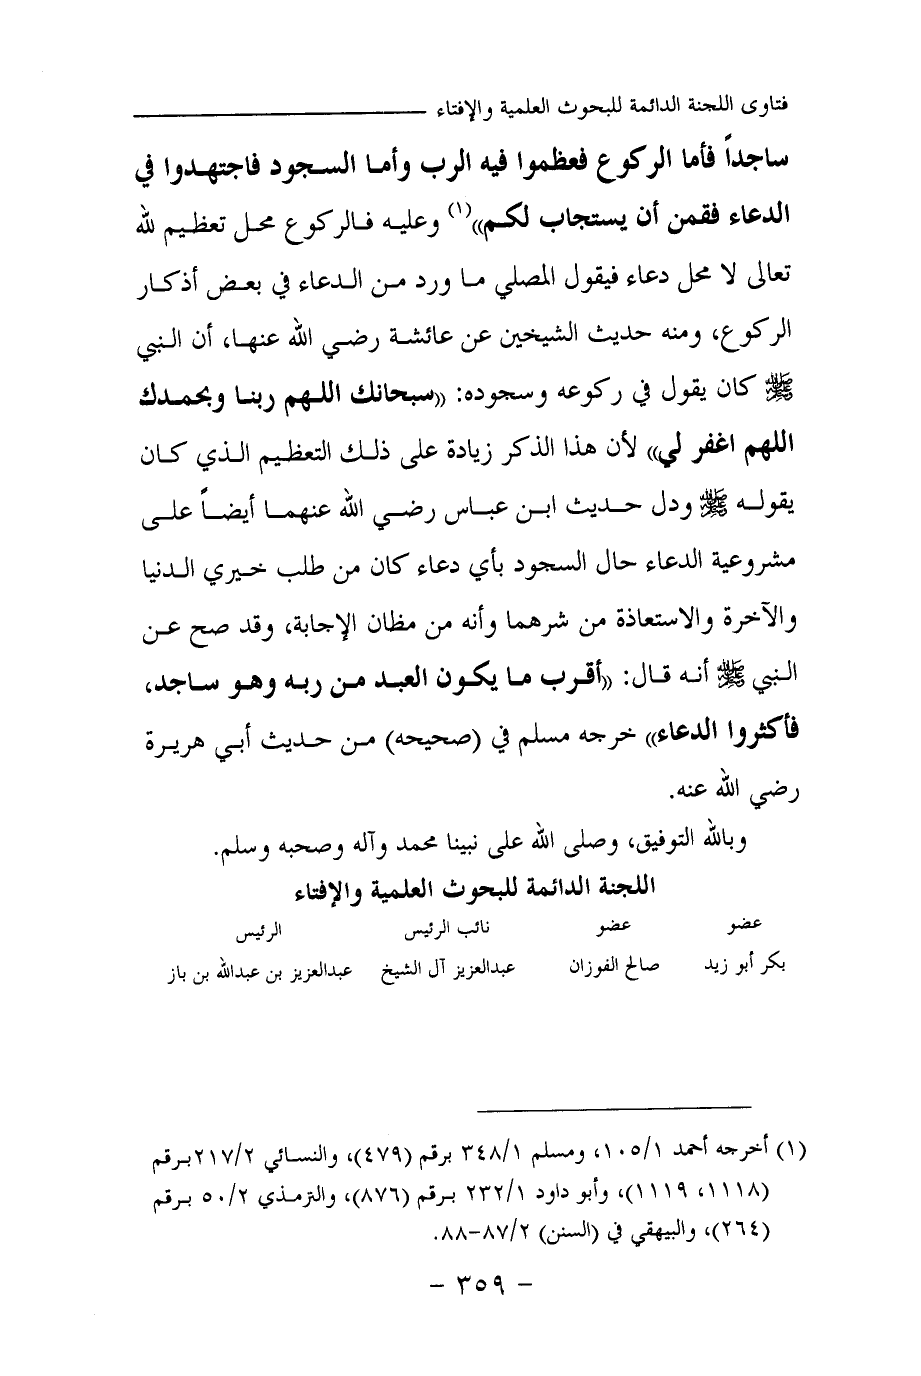 فتاوى اللجنة الدائمة للبحوث العلمية والإفتاء
ساجداً فأما الركوع فعظموا فيه الرب وأما السجود فاجتهدوا في
الدعاء فقمن أن يستجاب لكم»(١) وعليه فالركوع محل تعظيم لله
تعالى لا محل دعاء فيقول المصلي ما ورد من الدعاء في بعض أذكار
الركوع، ومنه حديث الشيخين عن عائشة رضي الله عنها، أن النبي
ﷺ كان يقول في ركوعه وسجوده: «سبحانك اللهم ربنا وبحمدك
اللهم اغفر لي» لأن هذا الذكر زيادة على ذلك التعظيم الذي كان
يقوله ﷺ ودل حديث ابن عباس رضي الله عنهما أيضاً على
مشروعية الدعاء حال السجود بأي دعاء كان من طلب خيري الدنيا
والآخرة والاستعاذة من شرهما وأنه من مظان الإجابة، وقد صح عن
النبي ﷺ أنه قال: «أقرب ما يكون العبد من ربه وهو ساجد،
فأكثروا الدعاء» خرجه مسلم في (صحيحه) من حديث أبي هريرة
رضي الله عنه.
وبالله التوفيق، وصلى الله على نبينا محمد وآله وصحبه وسلم.
اللجنة الدائمة للبحوث العلمية والإفتاء
عضو عضو نائب الرئيس الرئيس
بكر أبو زيد صالح الفوزان عبدالعزيز آل الشيخ عبدالعزيز بن عبدالله بن باز
(١) أخرجه أحمد ١٠٥/١، ومسلم ٣٤٨/١ برقم (٤٧٩)، والنسائي ٢١٧/٢برقم
(١١١٨، ١١١٩)، وأبو داود ٢٣٢/١ برقم (٨٧٦)، والترمذي ٥٠/٢ برقم
(٢٦٤)، والبيهقي في (السنن) ٨٧/٢-٨٨.
- ٣٥٩ -